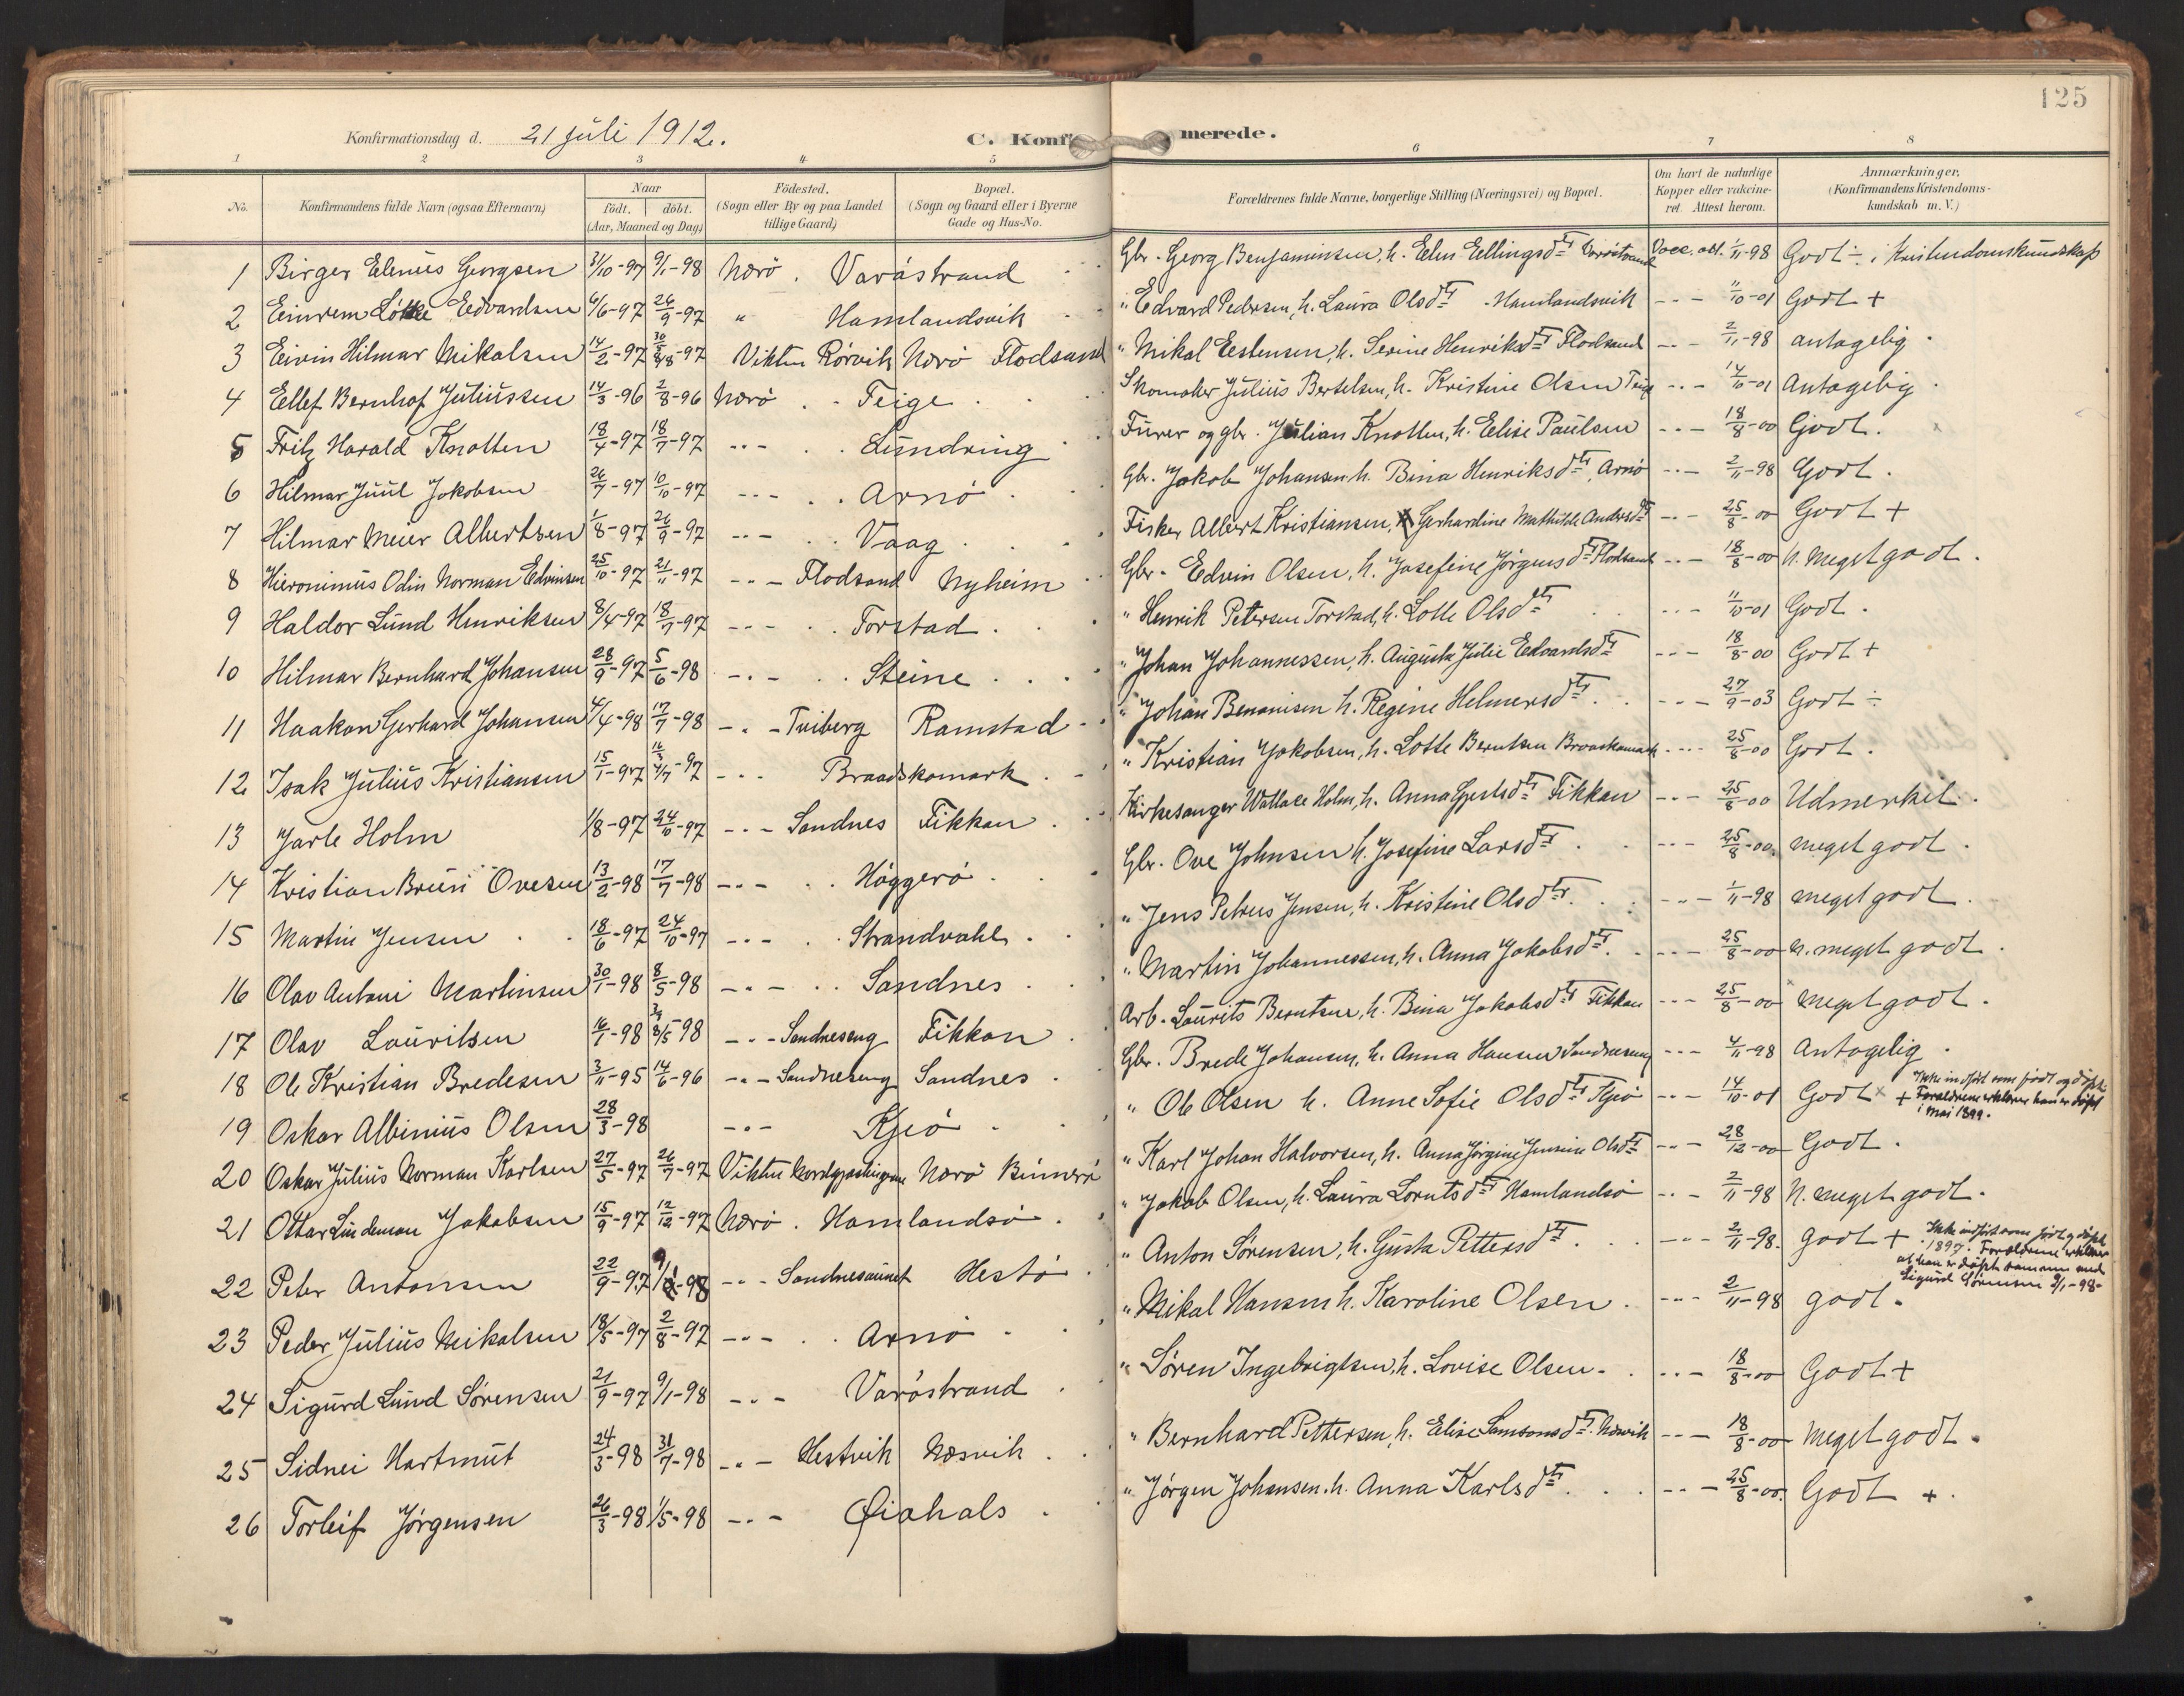 125
Konfirmationsdag d. 21 juli 1912.
C. Konfirmerede.
1 2 3 4 5 6 7 8
No. Konfirmandens fulde Navn (ogsaa Efternavn) Naar födt. döbt. (Aar, Maaned og Dag) Födested. (Sogn eller By og paa Landet tillige Gaard) Bopæl. (Sogn og Gaard eller i Byerne Gade og Hus-No. Forældrenes fulde Navne, borgerlige Stilling (Næringsvei) og Bopæl. Om havt de naturlige Kopper eller vakcineret. Attest herom. Anmærkninger. (Konfirmandens Kristendomskundskab m. V.)
1 Birger Elenius Georgsen 31/10-97 9/1-98 Nærö. Varöstrand Gbr. Georg Benjaminsen, h. Elen Ellingsdtr Varöstrand Vacc. att. 1/11-98 Godt ÷ i Kristendomskundskab
2 Edvardsen 4/6-97 26/9-97 " Hamlandsvik " Edvard Pedersen, h. Laura Olsdtr - Hamlandsvik - - - 11/10-01 Godt +
3 Eivin Hilmar Mikalsen 14/2-97 8/8-97 Vikten Rörvik Nærö Flodsand " Mikal Estensen, h. Serine Henriksdtr Flodsand - - - 2/11-98 antagelig.
4 Ellef Bernhof Juliussen 14/3-96 2/8-96 Nærö . . Teige Skomaker Julius Bertelsen, h. Kristine Olsen Teige - - - 14/10-01 Antagelig.
5 Fritz Harald Knotten 18/4-97 18/7-97 - - - . . Lundring Furer og gbr. Julian Knotten, h. Elise Paulsen - - - 18/8-00 Godt.
6 Hilmar Juul Jakobsen 26/7-97 10/10-97 - - - . . Arnö Gbr. Jakob Johansen h. Bina Henriksdtr, Arnö - - - 2/11-98 Godt.
7 Hilmar Meier Albertsen 1/8-97 26/9-97 - - - . . Vaag Fisker Albert Kristiansen, Gerhardine Mathilde Andersdtr - - - 25/8-00 Godt +
8 Hieronimus Odin Norman Edvinsen 25/10-97 21/11-97 - - - Flodsand Nyheim Gbr. Edvin Olsen, h. Josefine Jörgensdtr Flodsand - - - 18/8-00 N. meget godt.
9 Haldor Lund Henriksen 8/4-97 18/7-97 - - - . . Torstad " Henrik Petersen Torstad, h. Lotte Olsdtr - - - 11/10-01 Godt.
10 Hilmar Bernhard Johansen 28/9-97 5/6-98 - - - . . Steine " Johan Johannessen, h. Augusta Julie Edvardsdtr - - - 18/8-00 Godt +
11 Haakon Gerhard Johansen 4/4-98 17/7-98 - - - Tviberg Ramstad " Johan Benonisen h. Regine Helmersdtr - - - 27/9-03 Godt ÷
12 Isak Julius Kristiansen 15/1-97 4/7-97 - - - Braadskomark " Kristian Jakobsen, h. Lotte Berntsen Braadskomark - - - 25/8-00 Godt.
13 Jarle Holm 1/8-97 24/10-97 - - - Sandnes Fikkan Kirkesanger Wallace Holm, h. Anna Fikkan - - - 25/8-00 Udmerket.
14 Kristian Brun Ovesen 13/2-98 17/7-98 - - - . . Höggerö Gbr. Ove Johnsen h. Josefine Larsdtr - - - 25/8-00. meget godt.
15 Martin Jensen 18/6-97 24/10-97 - - - . . Strandvahl " Jens Petrus Jensen, h. Kristine Olsdtr. - - - 1/11-98 meget godt.
16 Olav Antoni Martinsen 30/1-98 8/5-98 - - - . . Sandnes " Martin Johannessen, h. Anna Jakobsdtr. - - - 25/8-00 N. meget godt.
17 Olav Lauritsen 16/1-98 8/5 98 - - - Sandneseng Fikkan Arb. Laurits Berntsen, h. Bina Jakobsdtr Fikkan - - - 25/8-00 Meget godt.
18 Ole Kristian Bredesen 3/11-95 14/6-96 - - - Sandneseng Sandnes Gbr. Brede Johansen, h. Anna Hansen Sandneseng - - - 4/11-98 Antagelig.
19 Oskar Albinius Olsen 28/3-98 - - - Kjeö " Ole Olsen h. Anne Sofie Olsdtr Kjeö - - - 14/10-01 Godt + Ikke indført som født og döpt. Forældrene erklærer han er döpt i mai 1899.
20 Oskar Julius Norman Karlsen 27/5-97 26/7-97 Vikten Nærö " Karl Johan Halvorsen, h. Anna Jörgine Jensine Olsdtr - - - 28/12-00 Godt.
21 Ottar Lindeman Jakobsen 15/9-97 12/12-97 Nærö. Hamlandsö " Jakob Olsen, h. Laura Lorntsdtr Hamlandsö - - - 2/11-98 N. meget godt.
22 Peter Antonsen 22/9-97 9/1-98 - - - Sandnesaunet Hestö " Anton Sörensen, h. Gusta Pettersdtr - - - 2/11-98. godt + Ikke indført som født og döpt 1897. Forældrene erklærer at han er döpt sammen med Sigurd Sörensen 9/1-98-
23 Peder Julius Mikalsen 18/5-97 2/8-97 - - - . . Arnö " Mikal Hansen h. Karoline Olsen. - - - 2/11-98 godt.
24 Sigurd Lund Sörensen 21/9-97 9/1-98 - - - Varöstrand " Sören Ingebrigtsen, h. Lovise Olsen. - - - 18/8-00 Godt +
25 Sidnei Hartmut 24/3-98 31/7-98 - - - Hestvik Næsvik " Bernhard Pettersen, h. Elise Samsonsdtr. Næsvik - - - 18/8-00 Meget godt.
26 Torleif Jörgensen 26/3-98 1/5-98 - - - Øiahals " Jörgen Johansen. h. Anna Karlsdtr. - - - 25/8-00. Godt +.